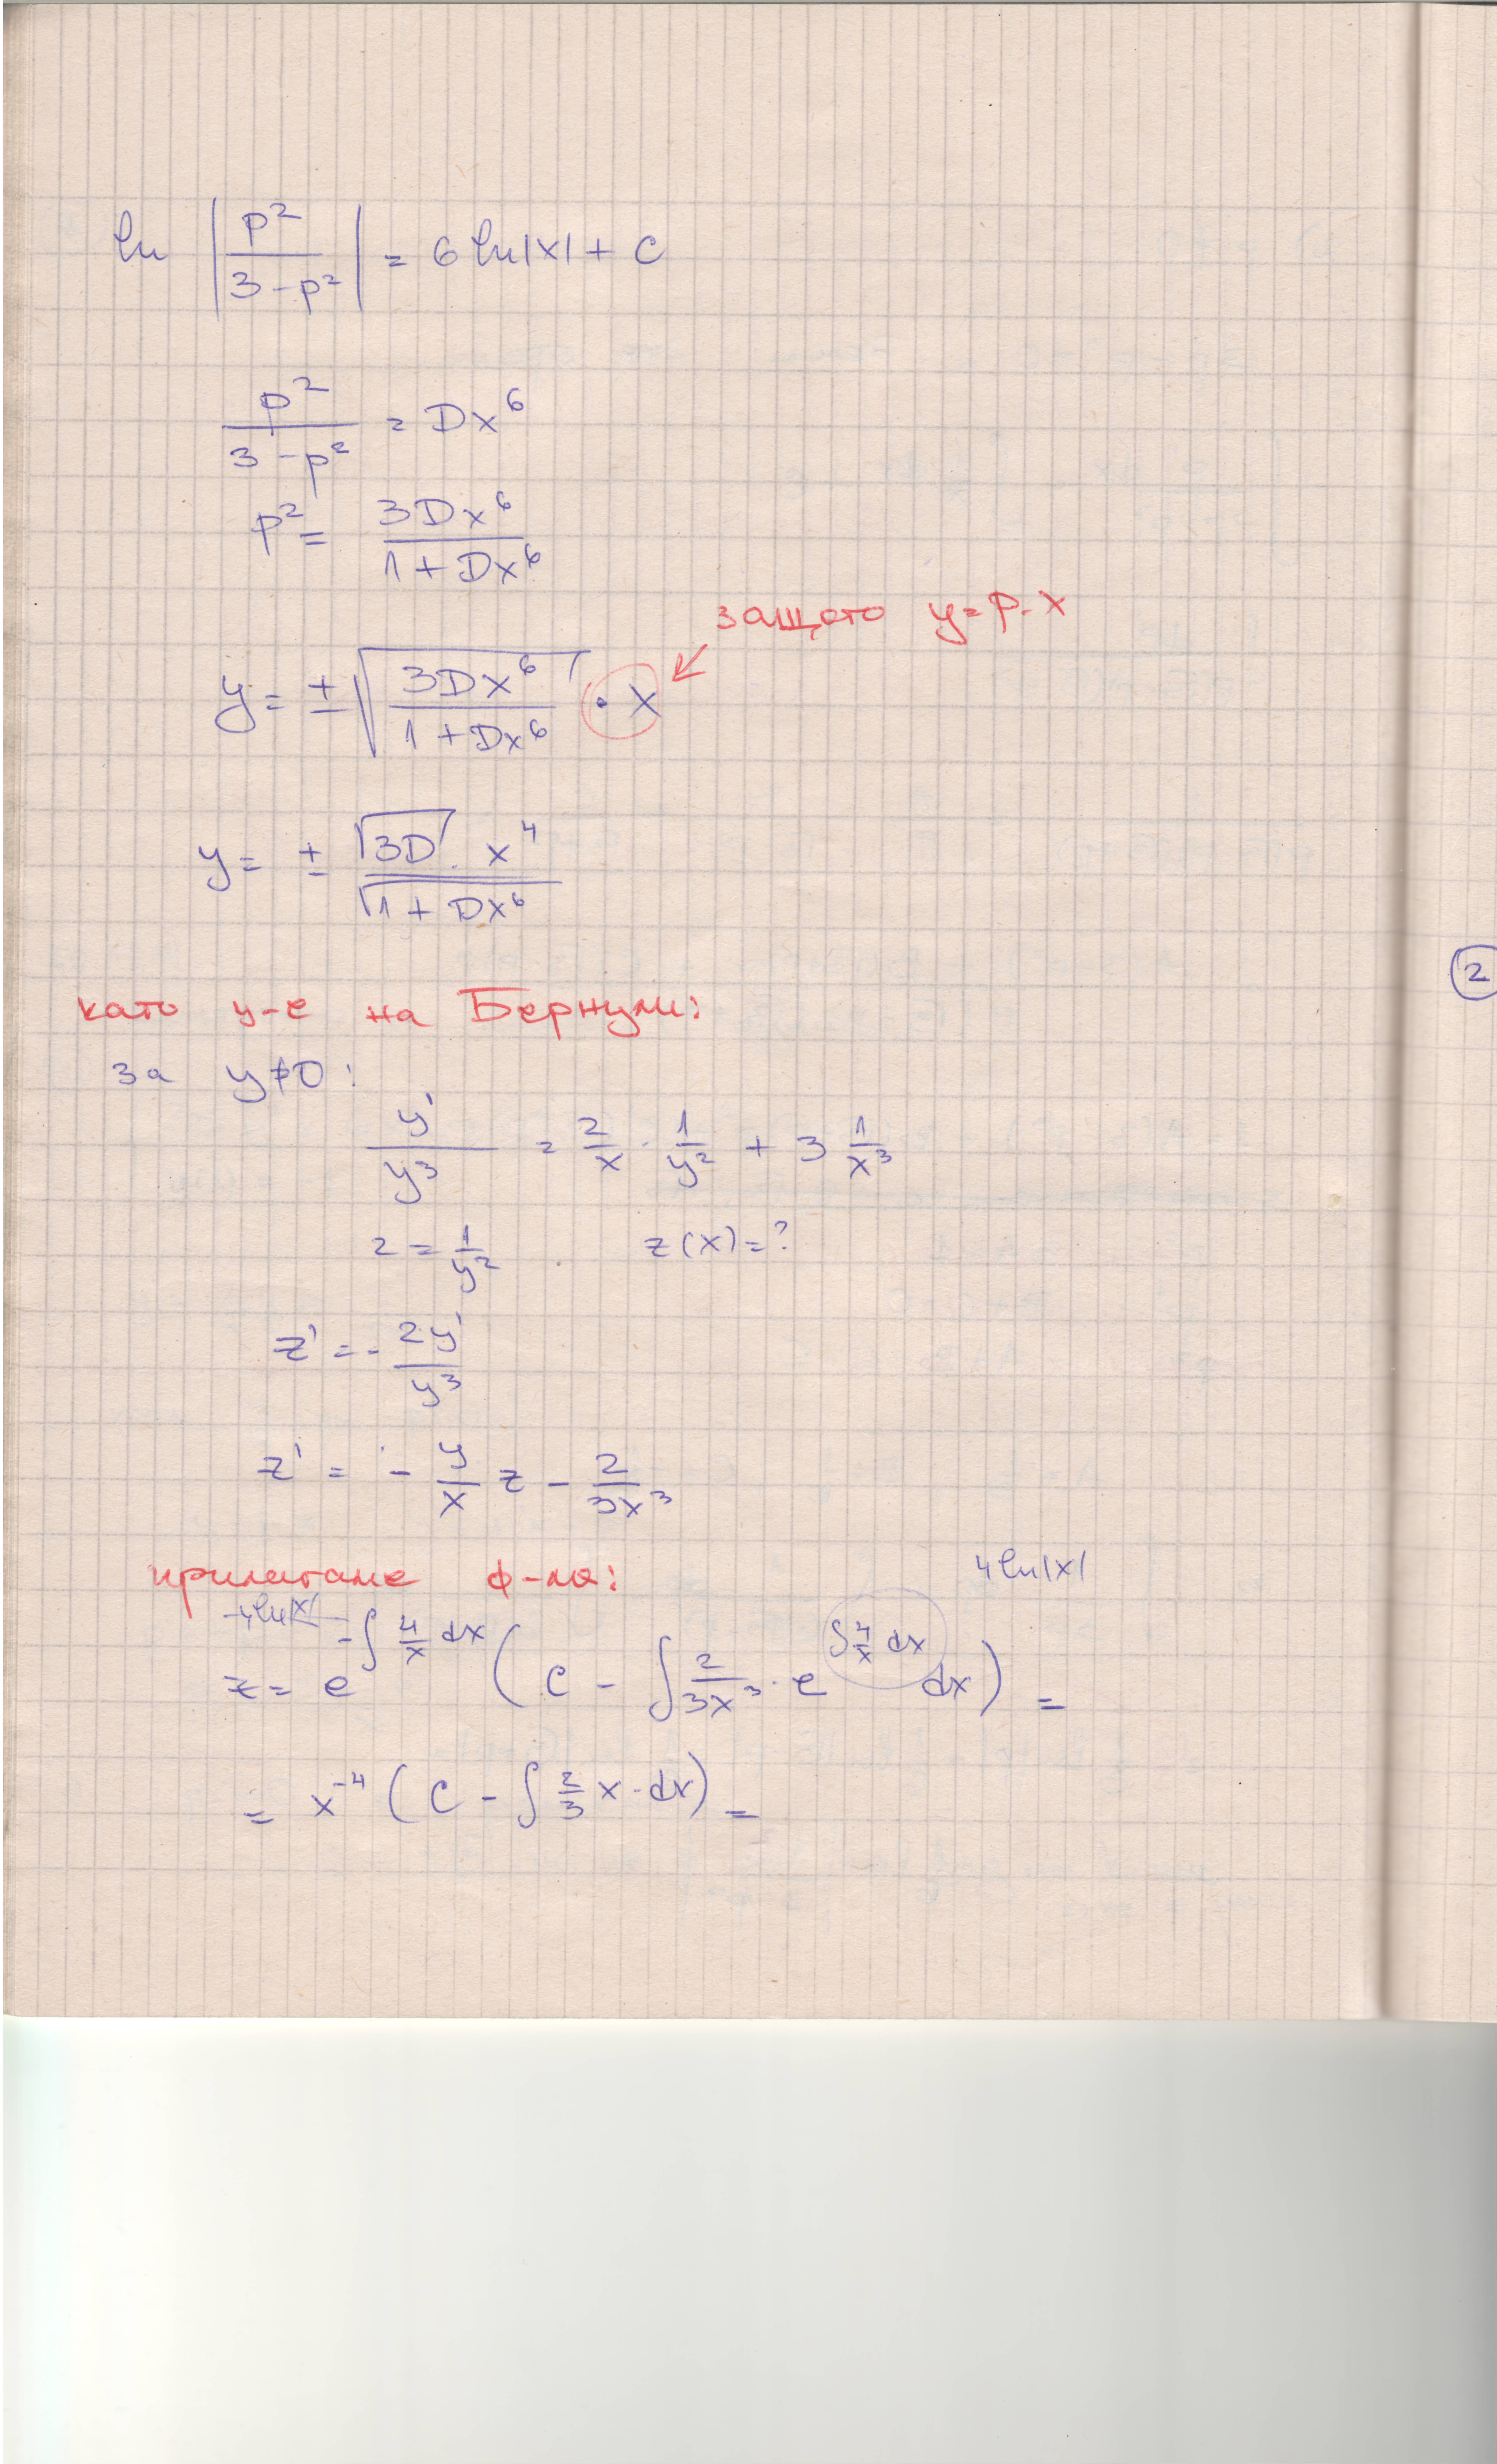 ln |p²/(3-p²)| = 6 ln|x| + c
p²/(3-p²) = Dx⁶
p² = 3Dx⁶/(1+Dx⁶)
защото y=p.x
y = ± √(3Dx⁶/(1+Dx⁶)) · x
y = ± √3D . x⁴/√(1+Dx⁶)
2
като у-е на Бернули:
за y≠0:
y'/y³ = 2/x · 1/y² + 3 1/x³
z = 1/y² z(x)=?
z' = - 2y'/y³
z' = - 4/x z - 2/3x³
прилагаме ф-ла:
4ln|x|
-4ln|x|
z = e^(-∫ 4/x dx) (c - ∫ 2/3x³ · e^(∫ 4/x dx) dx) =
= x⁻⁴ (c - ∫ 2/3 x · dx) =